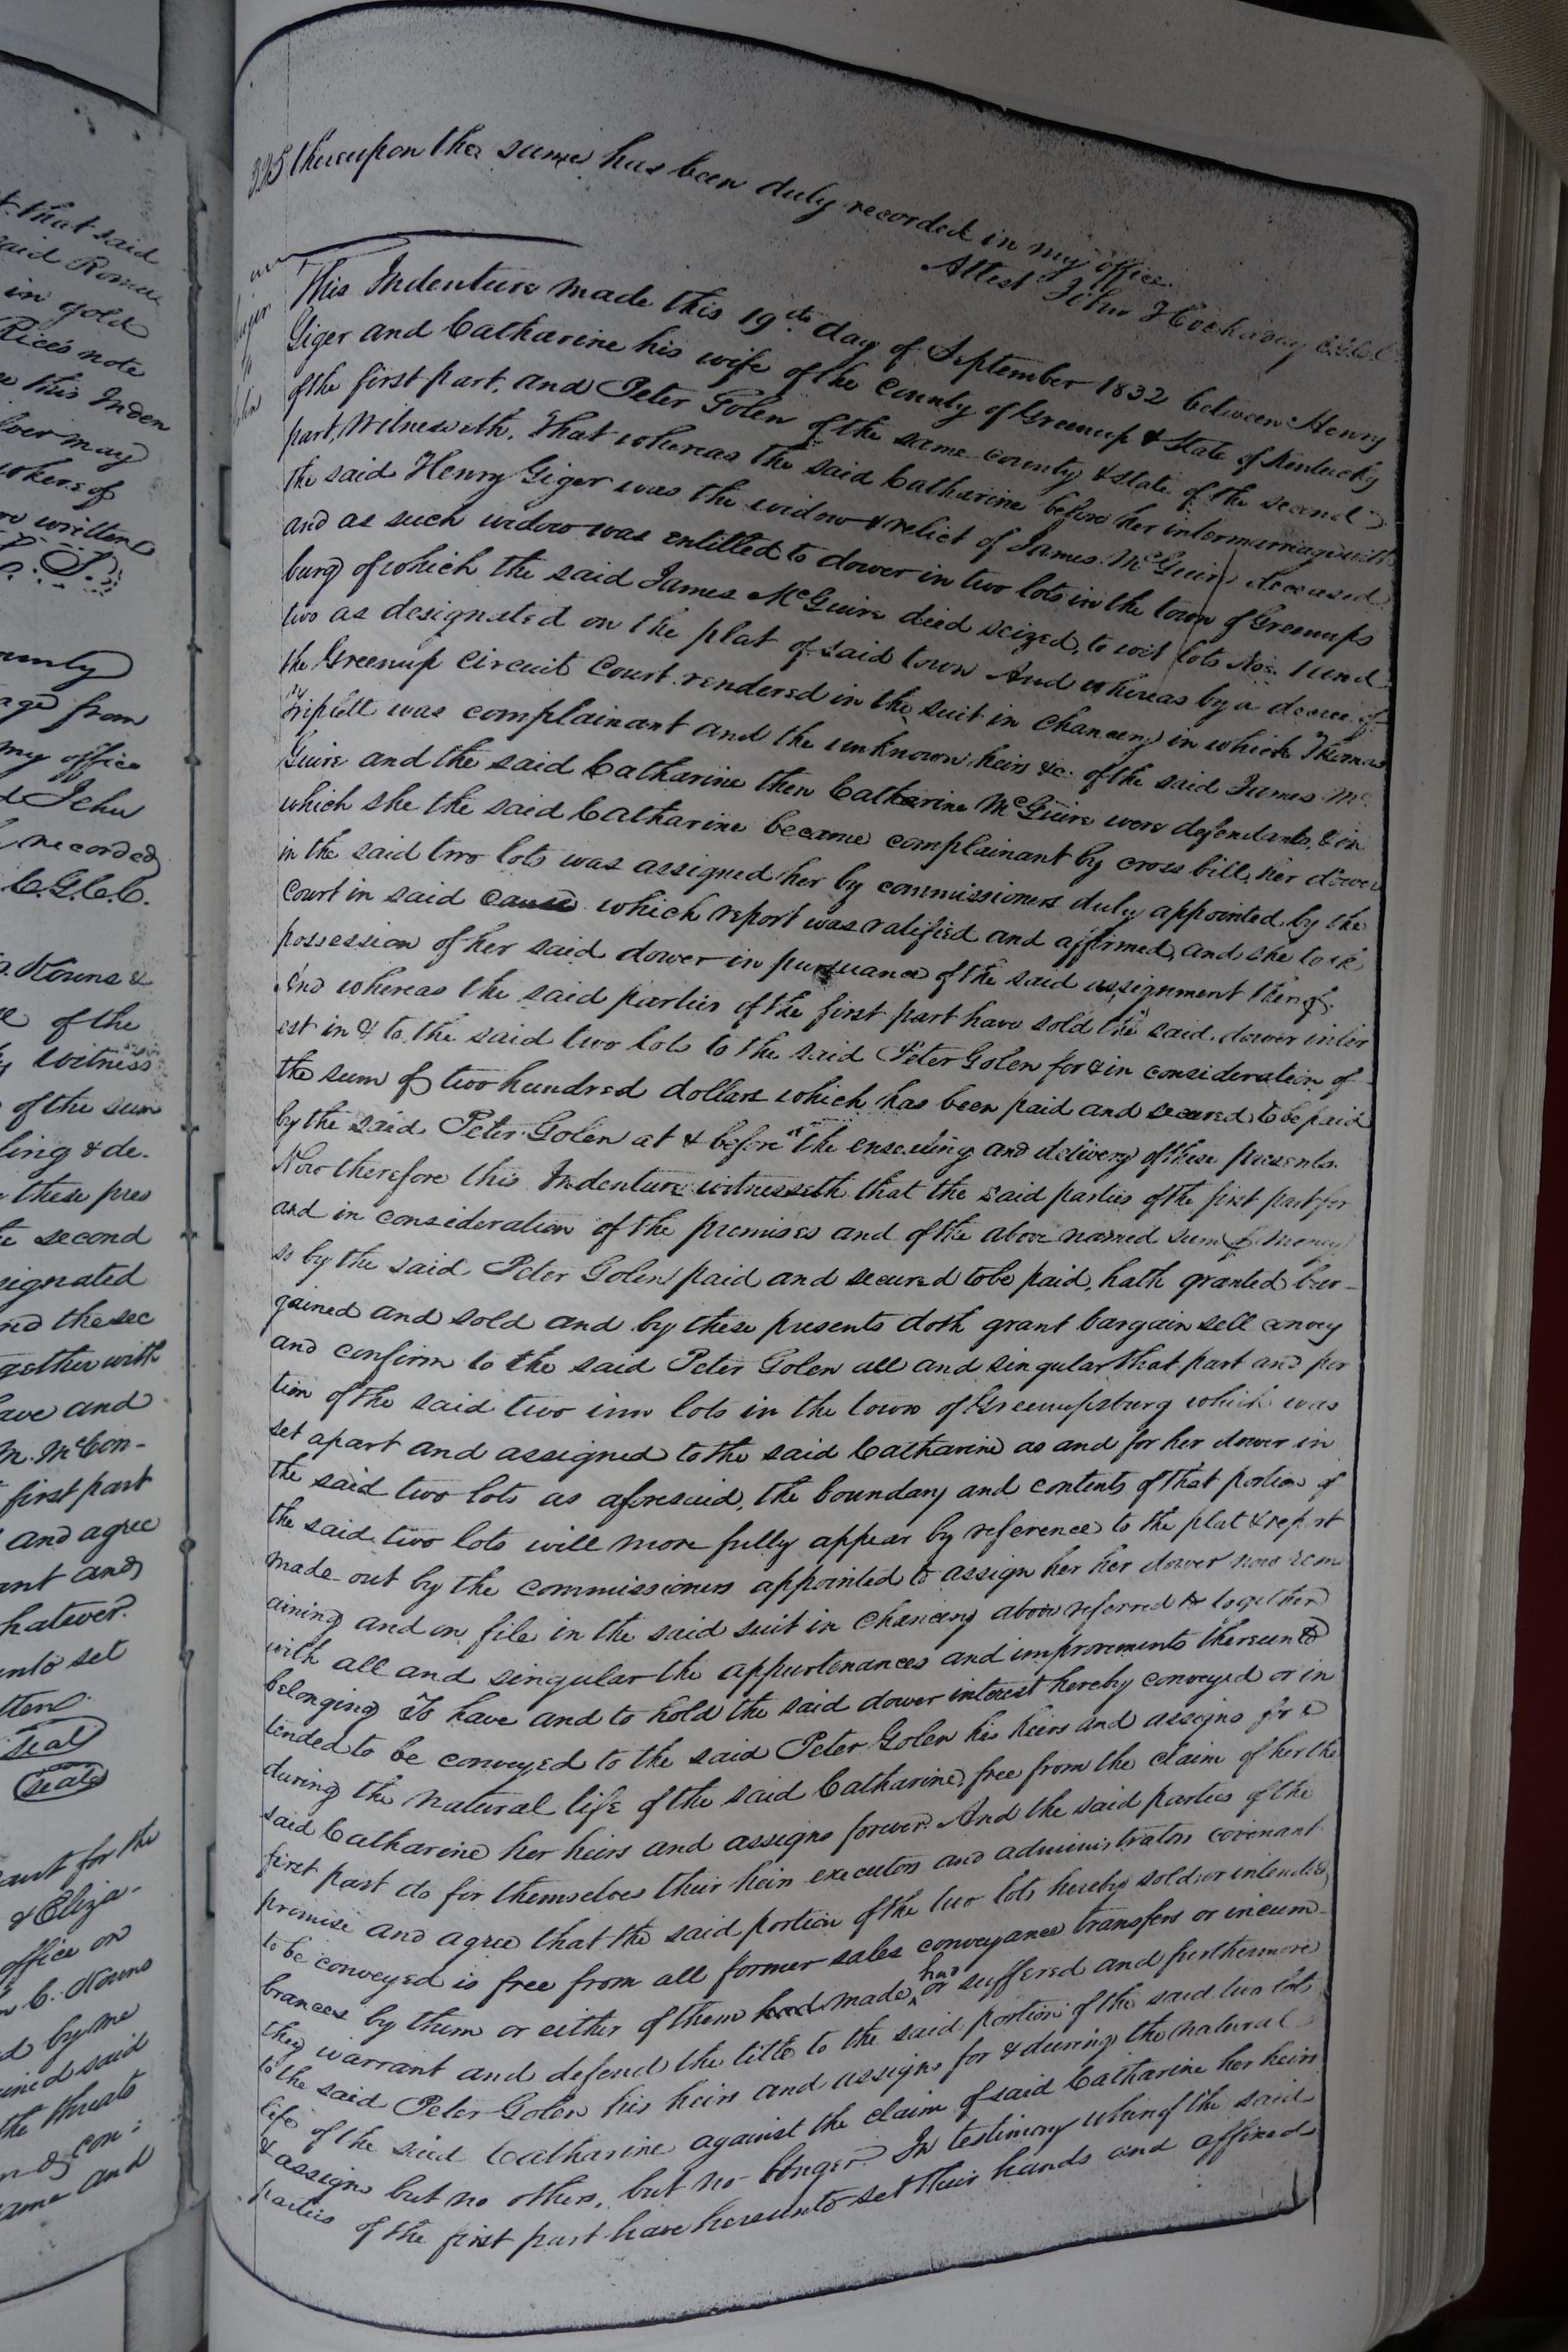 t. that said
said Romue
in gold
Rice's note
this Inden
ver may
written
L. S.
ounty
age from
my office
d Jehu
recorded
C.G.C.C.
Kouns &
of the
witness
of the sum
ling & de.
these pres
second
signated
nd the sec
gether with
ave and
m. McCon-
first part
and agree
ant and
hatever.
unto set
tten
Seal
Seal
ant for the
& Eliza-
office on
C. Kouns
d by me
ined said
the threats
con-
ame and
325 thereupon the same has been duly recorded in my office.
Attest John Hockaday C.G.C.C.
This Indenture made this 19th day of September 1832 between Henry
Giger and Catharine his wife of the County of Greenup & State of Kentucky
of the first part, and Peter Golen of the same county & state of the second
part, Witnesseth. That whereas the said Catharine before her intermarriage with
the said Henry Giger was the widow & relict of James McGuire deceased
and as such widow was entitled to dower in two lots in the town of Greenups
burg of which the said James McGuire died seized, to wit lots Nos. 1 and
two as designated on the plat of said town And whereas by a decree of
the Greenup Circuit Court rendered in the suit in chancery in which Thomas
Triplett was complainant and the unknown heirs &c. of the said James Mc
Guire and the said Catharine then Catharine McGuire were defendants, & in
which she the said Catharine became complainant by cross bill, her dower
in the said two lots was assigned her by commissioners duly appointed by the
Court in said cause which report was ratified and affirmed, and she took
possession of her said dower in pursuance of the said assignment thereof.
And whereas the said parties of the first part have sold the said dower inter
est in & to the said two lots to the said Peter Golen for & in consideration of
the sum of two hundred dollars which has been paid and secured to be paid
by the said Peter Golen at & before the ensealing and delivery of these presents.
Now therefore this Indenture witnesseth that the said parties of the first part for
and in consideration of the premises and of the above named sum of money
so by the said Peter Golen paid and secured to be paid, hath granted bar-
gained and sold and by these presents doth grant bargain sell convey
and confirm to the said Peter Golen all and singular that part and por
tion of the said two inn lots in the town of Greenupsburg which was
set apart and assigned to the said Catharine as and for her dower in
the said two lots as aforesaid, the boundary and contents of that portion of
the said two lots will more fully appear by reference to the plat & report
made out by the commissioners appointed to assign her her dower now rem
aining and on file in the said suit in chancery above referred to together
with all and singular the appurtenances and improvements thereunto
belonging To have and to hold the said dower interest hereby conveyed or in
tended to be conveyed to the said Peter Golen his heirs and assigns for &
during the natural life of the said Catharine, free from the claim of her the
said Catharine her heirs and assigns forever. And the said parties of the
first part do for themselves their heirs executors and administrators covenant
promise and agree that the said portion of the two lots hereby sold or intended
to be conveyed is free from all former sales conveyance transfers or incum-
brances by them or either of them had made, had or suffered and furthermore
they warrant and defend the title to the said portion of the said two lots
to the said Peter Golen his heirs and assigns for & during the natural
life of the said Catharine against the claim of said Catharine her heirs
& assigns but no others, but no longer. In testimony whereof the said
parties of the first part have hereunto set their hands and affixed